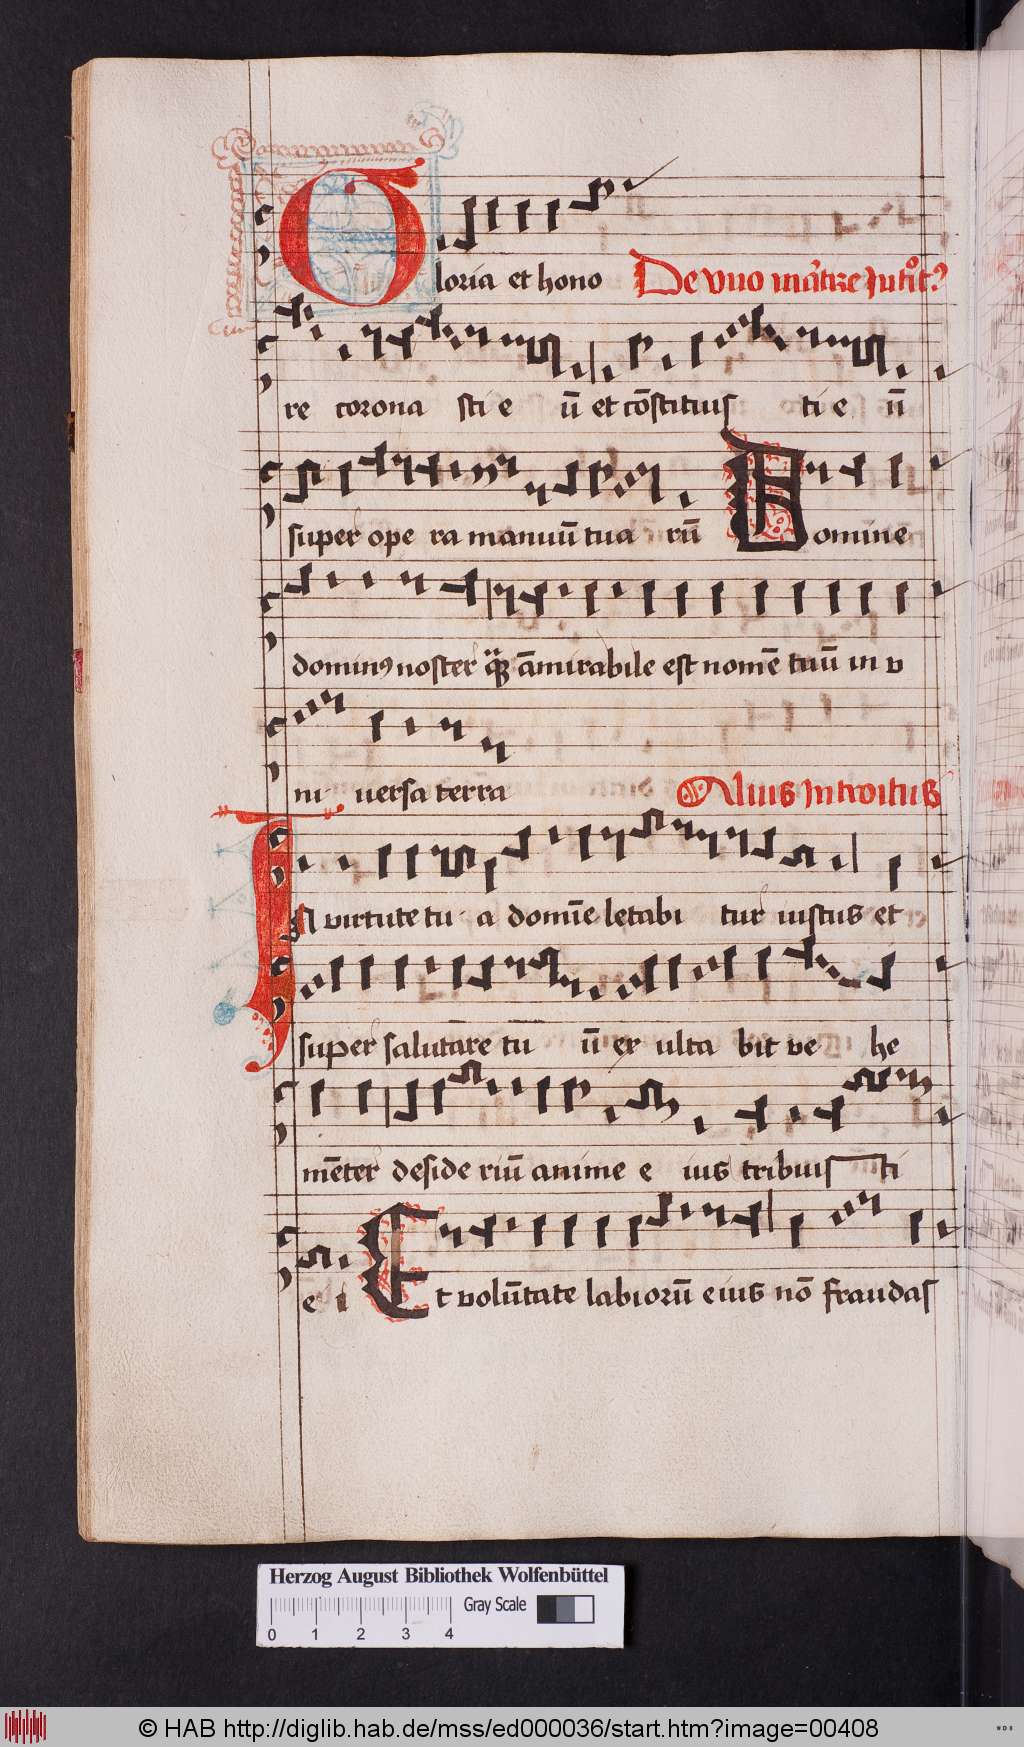 Gloria et hono De vno mart̄ire Introit̄⁹
re corona sti e ū et cōstituis ti e ū
super ope ra manuū tua rū Domine
dominꝰ noster q̄ āmirabile est nomē tuū in v
ni uersa terra Alius Introitus
In virtute tu a domīe letabi tur iustus et
super salutāre tū ū ex ulta bit ve he
mēter deside riū anime e ius tribuis ti
e i Et volūtate labiorū eius nō fraudas
Herzog August Bibliothek Wolfenbüttel
Gray Scale
0 1 2 3 4
© HAB http://diglib.hab.de/mss/ed000036/start.htm?image=00408